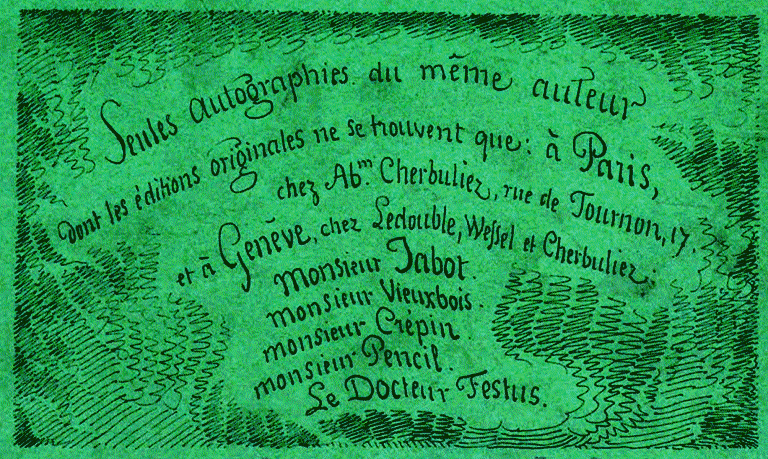 Seules autographies du même auteur
dont les éditions originales ne se trouvent que: à Paris,
chez Abm. Cherbuliez, rue de Tournon, 17.
et à Genève, chez Ledouble, Wessel et Cherbuliez:
Monsieur Jabot.
monsieur Vieuxbois.
monsieur Crépin.
monsieur Pencil.
Le Docteur Festus.